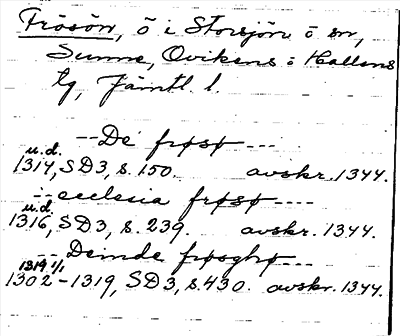 Frösön, ö i Storsjön ö sn,
Sunne, Ovikens o Hallens
tg, Jämtl. l.
-- De frøsø ---
u.d.
1314, SD3, s. 150. avskr. 1344.
-- ecclesia frøsø ----
u.d.
1316, SD3, s. 239. avskr. 1344.
-- Deinde frøsghø ---
1319 1/1
1302-1319, SD3, s. 430. avskr. 1344.